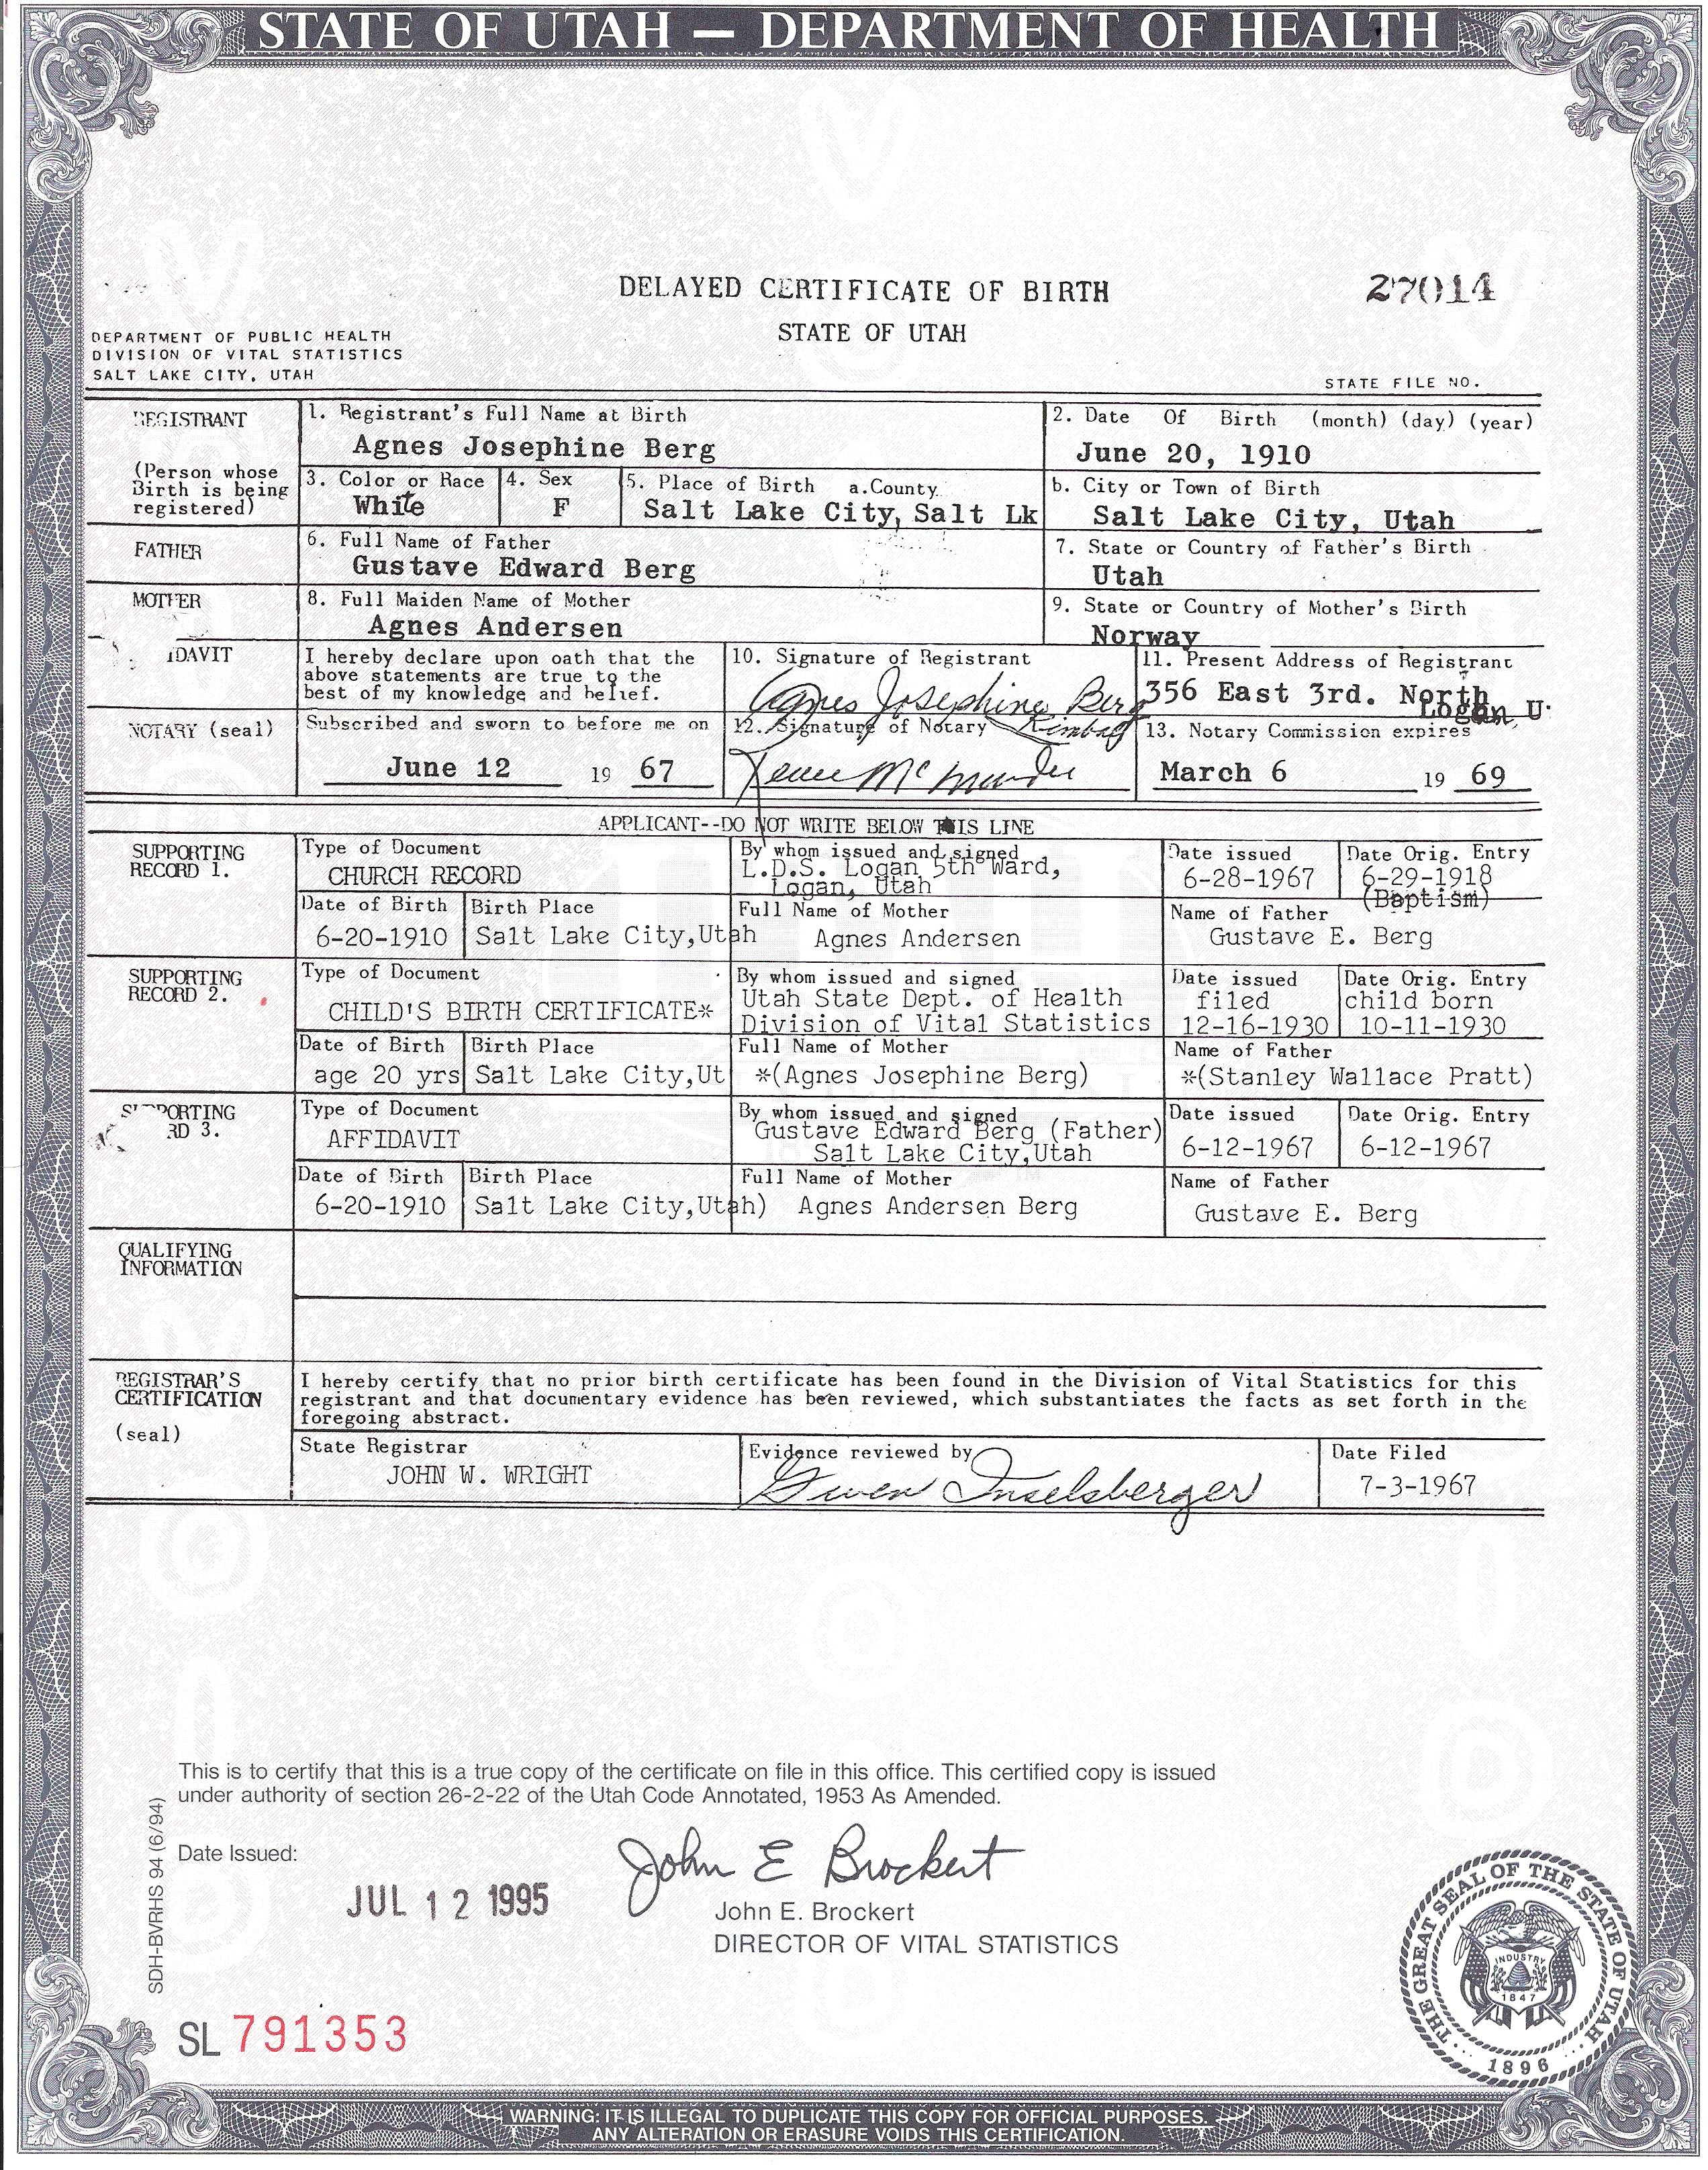 STATE OF UTAH — DEPARTMENT OF HEALTH
DELAYED CERTIFICATE OF BIRTH
27014
STATE OF UTAH
DEPARTMENT OF PUBLIC HEALTH
DIVISION OF VITAL STATISTICS
SALT LAKE CITY, UTAH
STATE FILE NO.
REGISTRANT
(Person whose
Birth is being
registered)
1. Registrant's Full Name at Birth
Agnes Josephine Berg
2. Date Of Birth (month) (day) (year)
June 20, 1910
3. Color or Race
White
4. Sex
F
5. Place of Birth a.County
Salt Lake City, Salt Lk
b. City or Town of Birth
Salt Lake City, Utah
FATHER
6. Full Name of Father
Gustave Edward Berg
7. State or Country of Father's Birth
Utah
MOTHER
8. Full Maiden Name of Mother
Agnes Andersen
9. State or Country of Mother's Birth
Norway
IDAVIT
I hereby declare upon oath that the
above statements are true to the
best of my knowledge and belief.
10. Signature of Registrant
Agnes Josephine Berg
11. Present Address of Registrant
356 East 3rd. North
Logan, U.
NOTARY (seal)
Subscribed and sworn to before me on
June 12 19 67
12. Signature of Notary
13. Notary Commission expires
March 6 19 69
APPLICANT--DO NOT WRITE BELOW THIS LINE
SUPPORTING
RECORD 1.
Type of Document
CHURCH RECORD
By whom issued and signed
L.D.S. Logan 5th Ward,
Logan, Utah
Date issued
6-28-1967
Date Orig. Entry
6-29-1918
(Baptism)
Date of Birth
6-20-1910
Birth Place
Salt Lake City,Utah
Full Name of Mother
Agnes Andersen
Name of Father
Gustave E. Berg
SUPPORTING
RECORD 2.
Type of Document
CHILD'S BIRTH CERTIFICATE*
By whom issued and signed
Utah State Dept. of Health
Division of Vital Statistics
Date issued
filed
12-16-1930
Date Orig. Entry
child born
10-11-1930
Date of Birth
age 20 yrs
Birth Place
Salt Lake City,Ut
Full Name of Mother
*(Agnes Josephine Berg)
Name of Father
*(Stanley Wallace Pratt)
SUPPORTING
RD 3.
Type of Document
AFFIDAVIT
By whom issued and signed
Gustave Edward Berg (Father)
Salt Lake City,Utah
Date issued
6-12-1967
Date Orig. Entry
6-12-1967
Date of Birth
6-20-1910
Birth Place
Salt Lake City,Utah)
Full Name of Mother
Agnes Andersen Berg
Name of Father
Gustave E. Berg
QUALIFYING
INFORMATION
REGISTRAR'S
CERTIFICATION
(seal)
I hereby certify that no prior birth certificate has been found in the Division of Vital Statistics for this
registrant and that documentary evidence has been reviewed, which substantiates the facts as set forth in the
foregoing abstract.
State Registrar
JOHN W. WRIGHT
Evidence reviewed by
Gwen Inselsberger
Date Filed
7-3-1967
This is to certify that this is a true copy of the certificate on file in this office. This certified copy is issued
under authority of section 26-2-22 of the Utah Code Annotated, 1953 As Amended.
Date Issued:
JUL 12 1995
John E Brockert
John E. Brockert
DIRECTOR OF VITAL STATISTICS
SDH-BVRHS 94 (6/94)
SL 791353
THE GREAT SEAL OF THE STATE OF UTAH
INDUSTRY
1847
1896
WARNING: IT IS ILLEGAL TO DUPLICATE THIS COPY FOR OFFICIAL PURPOSES.
ANY ALTERATION OR ERASURE VOIDS THIS CERTIFICATION.